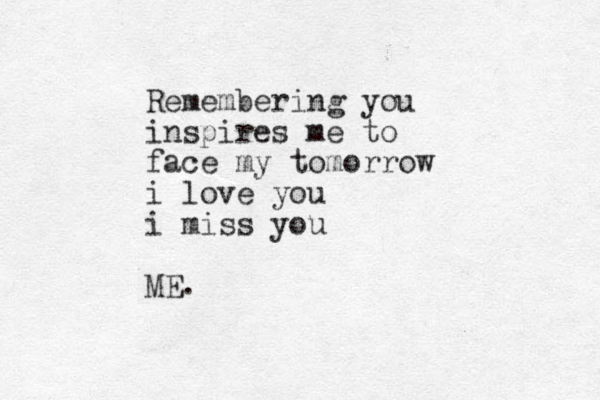 Remembering you
inspires me to
face my tomorrow
i love you
i miss you
ME.